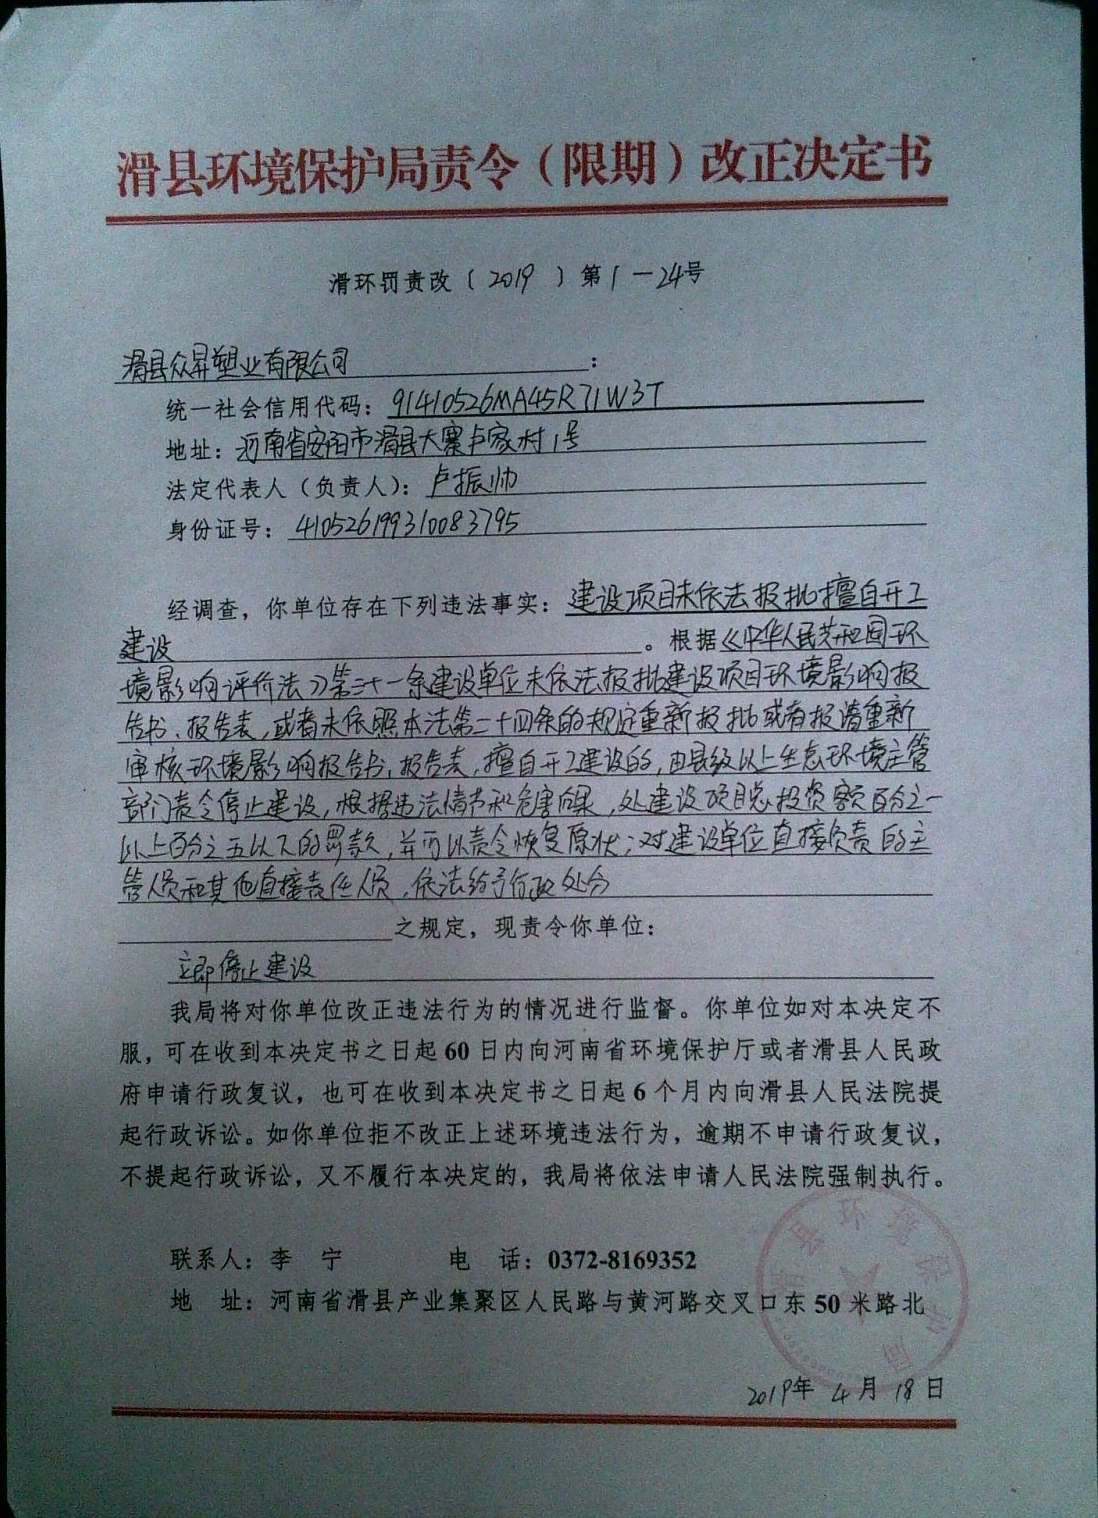 滑县环境保护局责令（限期）改正决定书
滑环罚责改〔2019〕第1－24号
滑县众昇塑业有限公司：
统一社会信用代码：91410526MA45R71W3T
地址：河南省安阳市滑县大寨卢家村1号
法定代表人（负责人）：卢振帅
身份证号：410526199310083795
经调查，你单位存在下列违法事实：建设项目未依法报批擅自开工
建设。根据《中华人民共和国环
境影响评价法》第三十一条建设单位未依法报批建设项目环境影响报
告书、报告表，或者未依照本法第二十四条的规定重新报批或者报请重新
审核环境影响报告书、报告表，擅自开工建设的，由县级以上生态环境主管
部门责令停止建设，根据违法情节和危害后果，处建设项目总投资额百分之一
以上百分之五以下的罚款，并可以责令恢复原状；对建设单位直接负责的主
管人员和其他直接责任人员，依法给予行政处分
之规定，现责令你单位：
立即停止建设
我局将对你单位改正违法行为的情况进行监督。你单位如对本决定不
服，可在收到本决定书之日起 60 日内向河南省环境保护厅或者滑县人民政
府申请行政复议，也可在收到本决定书之日起 6 个月内向滑县人民法院提
起行政诉讼。如你单位拒不改正上述环境违法行为，逾期不申请行政复议，
不提起行政诉讼，又不履行本决定的，我局将依法申请人民法院强制执行。
联系人：李 宁 电 话：0372-8169352
地 址：河南省滑县产业集聚区人民路与黄河路交叉口东 50 米路北
滑县环境保护局
2019年 4月 18日